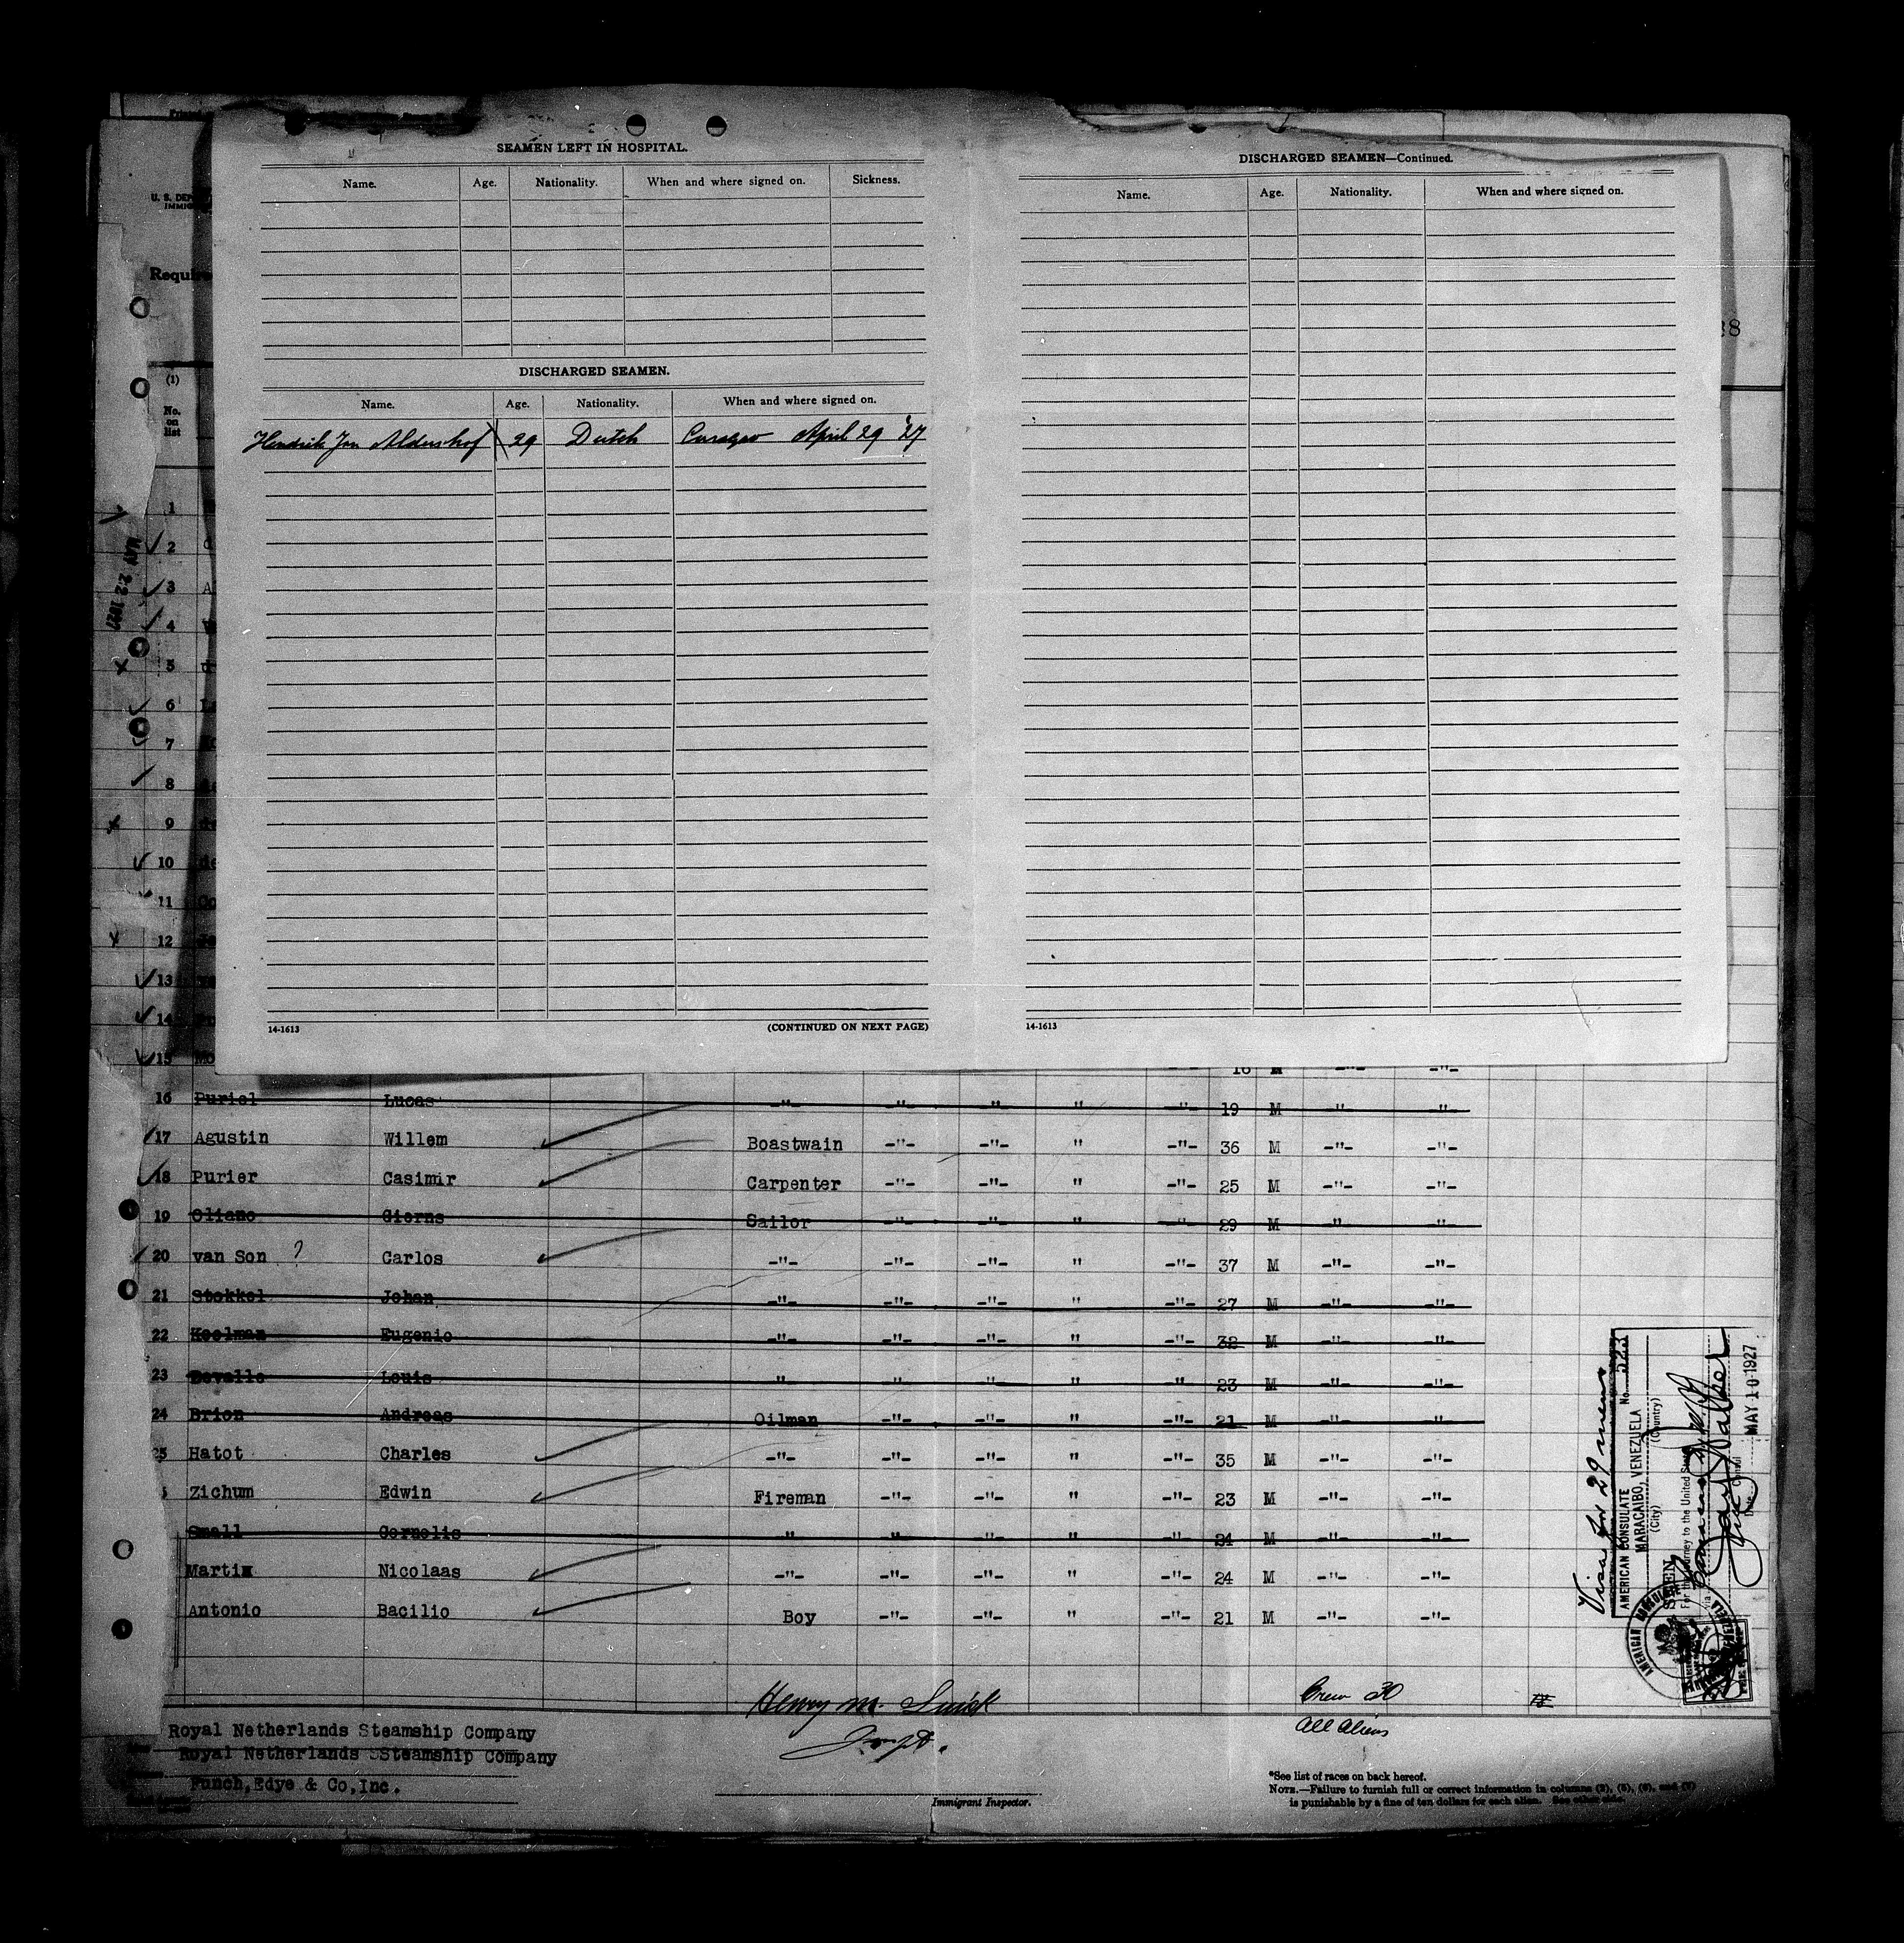 SEAMEN LEFT IN HOSPITAL.
Name. Age. Nationality. When and where signed on. Sickness.
DISCHARGED SEAMEN.
Name. Age. Nationality. When and where signed on.
Hendrik Jan Aldershof 29 Dutch Curaçao April 29 '27
14-1613 (CONTINUED ON NEXT PAGE)
DISCHARGED SEAMEN—Continued.
Name. Age. Nationality. When and where signed on.
14-1613
28
U. S. DEP
IMMIG
Requir
(1)
No.
on
list
MAY 22 1927
1
2
3 A
4
5
6
7
8
9 de
10 de
11 Co
12
13
14
15 Mo 18 M -"- -"-
16 Puriel Lucas -"- -"- -"- " -"- 19 M -"- -"-
17 Agustin Willem Boastwain -"- -"- " -"- 36 M -"- -"-
18 Purier Casimir Carpenter -"- -"- " -"- 25 M -"- -"-
19 Oliano Sailor -"- -"- " -"- 29 M -"- -"-
20 van Son ? Carlos -"- -"- -"- " -"- 37 M -"- -"-
21 Stokkel Johan -"- -"- -"- " -"- 27 M -"- -"-
22 Koolman Eugenio -"- -"- -"- " -"- 32 M -"- -"-
23 Devalle Louis " -"- -"- " -"- 23 M -"- -"-
24 Brion Andreas Oilman -"- -"- " -"- 21 M -"- -"-
25 Hatot Charles -"- -"- -"- " -"- 35 M -"- -"-
Zichum Edwin Fireman -"- -"- " -"- 23 M -"- -"-
Small Cornelis " " " " -"- 24 M -"- -"-
Martin Nicolaas -"- -"- -"- " -"- 24 M -"- -"-
Antonio Bacilio Boy -"- -"- " -"- 21 M -"- -"-
Visa for 29 names
AMERICAN CONSULATE No. 223
MARACAIBO, VENEZUELA
(City) (Country)
SEEN
For the journey to the United States
MAY 10 1927
Henry M.
Crew 30
All Aliens
Royal Netherlands Steamship Company
Royal Netherlands SSteamship Company
Funch,Edye & Co,Inc.
Immigrant Inspector.
*See list of races on back hereof.
NOTE.—Failure to furnish full or correct information in columns (2), (5), (6), and (7)
is punishable by a fine of ten dollars for each alien. See other side.